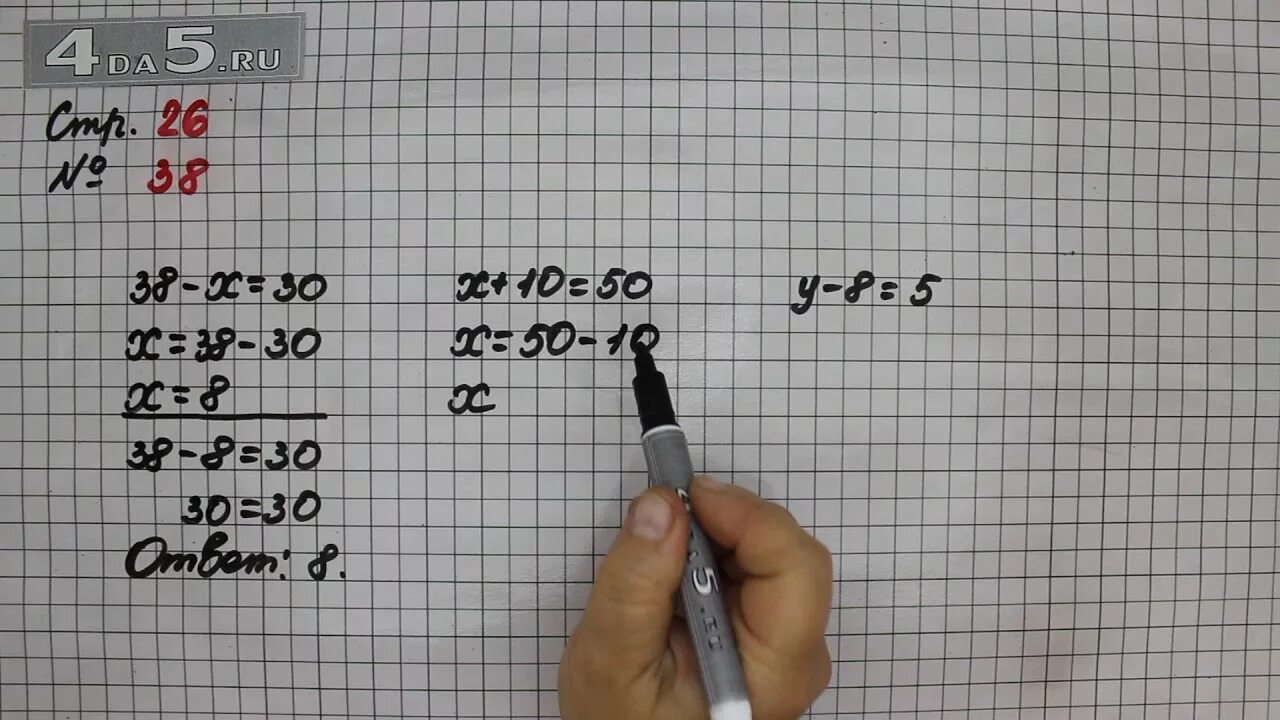 4DA5.RU
Стр. 26
№ 38
38-x=30
x=38-30
x=8
38-8=30
30=30
Ответ: 8.
x+10=50
x=50-10
x
y-8=5